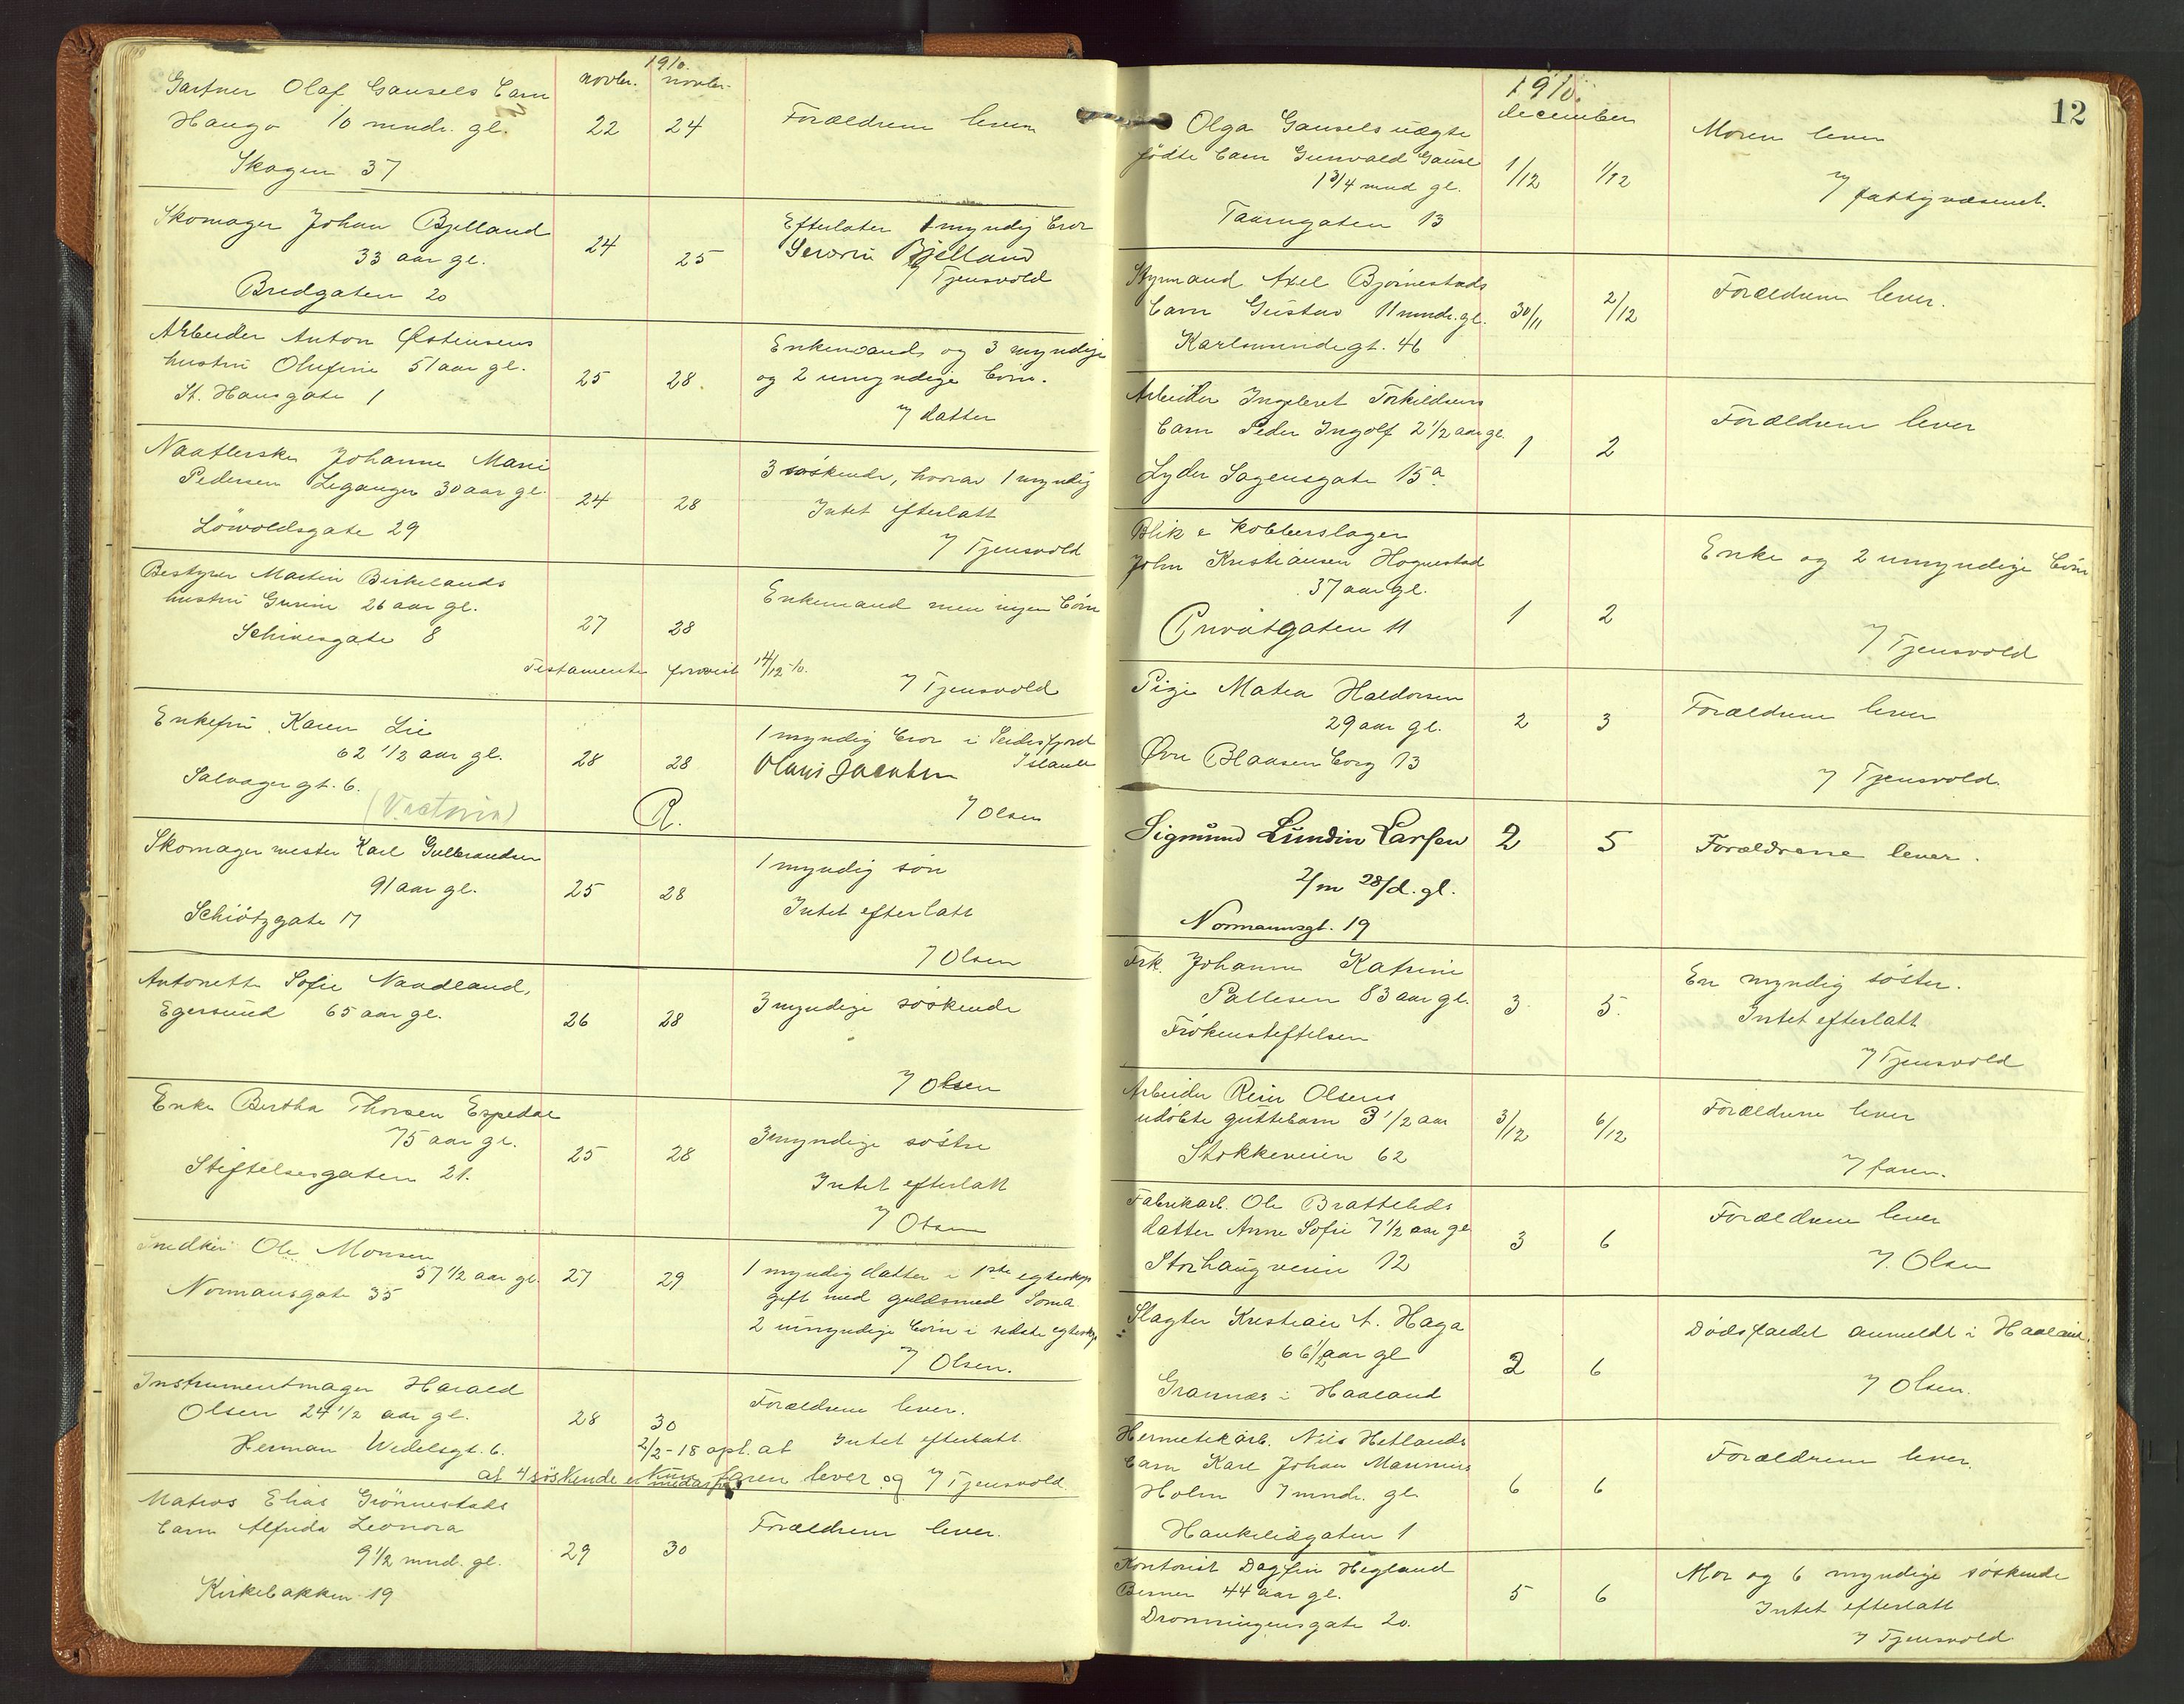 1910.
novbr. novbr.
Gartner Olaf Gausels barn
Haugo 10 mndr. gl. 22 24 Forældrene lever
Skagen 37
Skomager Johan Bjelland
33 aar gl. 24 25
Bredgaten 20
Efterlater 1 myndig bror
Bjelland
Tjensvold
Arbeider Anton Østensens
hustru Olufine 51 aar gl. 25 28
St. Hansgate 1
Enkemand og 3 myndige
og 2 umyndige børn.
datter
Johanne Marie
Pedersen Leganger 30 aar gl. 24 28
Løwoldsgate 29
3 søskende, hvorav 1 myndig
Intet efterlatt
Tjensvold
Bestyrer Martin Birkelands
hustru Gurine 26 aar gl. 27 28
8
Enkemand men ingen børn
Testamente forevist 14/12-10.
Tjensvold
Enkefru Karen Lie
62 1/2 aar gl. 28 28
Salvagergt. 6.
(Victoria)
R.
1 myndig bror i Seidisfjord
Island
Olaus Jacobsen
Olsen
Skomagermester Karl Gulbrandsen
91 aar gl. 25 28
Schiøtzgate 17
1 myndig søn
Intet efterlatt
Olsen
Antonette Sofie Naadland,
Egersund 65 aar gl. 26 28
3 myndige søskende
Olsen
Enke Bertha Thorsen Espedal
75 aar gl. 25 28
Stiftelsesgaten 21.
3 myndige søstre
Intet efterlatt
Olsen
Snedker Ole Monsen
57 1/2 aar gl. 27 29
Normansgate 35
1 myndig datter i 1ste egteskap
gift med guldsmed Soma
2 umyndige børn i sidste egteskap
Olsen.
Instrumentmager Harald
Olsen 24 1/2 aar gl. 28 30
Herman Wedelsgt. 6.
Forældrene lever.
Intet efterlatt
2/2-18 opl. at
at 4 søskende er faren lever og Tjensvold.
Matros Elias Grønnestads
barn Alfrida Leonora
9 1/2 mnd. gl. 29 30
Kirkebakken 19
Forældrene lever.
12
1910.
december
Olga Gausels uægte
fødte barn Gunvald Gausel 1/12 1/12
1 3/4 mnd gl.
Taarngaten 13
Moren lever
fattigvæsenet.
Styrmand Axel Bjørnestads
barn Gustav 11 mndr. gl. 30/11 2/12
Karlsmindegt. 46
Forældrene lever.
Arbeider Ingebret Torkildsens
barn Peder Ingolf 2 1/2 aar gl. 1 2
Lyder Sagensgate 15a
Forældrene lever
Blik & kobberslager
John Kristiansen Hognestad
37 aar gl.
Privatgaten 11 1 2
Enke og 2 umyndige børn
Tjensvold
Pige Matea Haldorsen
29 aar gl. 2 3
Øvre Blaasenborg 13
Forældrene lever
Tjensvold.
Sigmund Lundin Larsen 2 5
2/m 28/d. gl.
Normannsgt. 19
Forældrene lever.
Frk. Johanne Katrine
Pallesen 83 aar gl. 3 5.
Frøkenstiftelsen
En myndig søster.
Intet efterlatt
Tjensvold
Arbeider Olsens
udøbte guttebarn 3 1/2 aar 3/12 6/12
Stokkeveien 62
Forældrene lever
faren.
Fabrikarb. Ole Brattelids
datter Anne Sofie 7 1/2 aar gl 3 6
Storhaugveien 12
Forældrene lever
Olsen
Slagter Kristian A. Haga
66 1/2 aar gl 2 6
Grannes i Haaland
Dødsfaldet anmeldt i Haaland.
Olsen.
Hermetikarb. Nils Hetlands
barn Karl Johan
Holm 7 mndr. gl. 6 6
Haukeligaten 1
Forældrene lever.
Kontorist Dagfin Hegland
Berner 44 aar gl. 5 6
Dronningensgate 20.
Mor og 6 myndige søskende
Intet efterlatt
Tjensvold